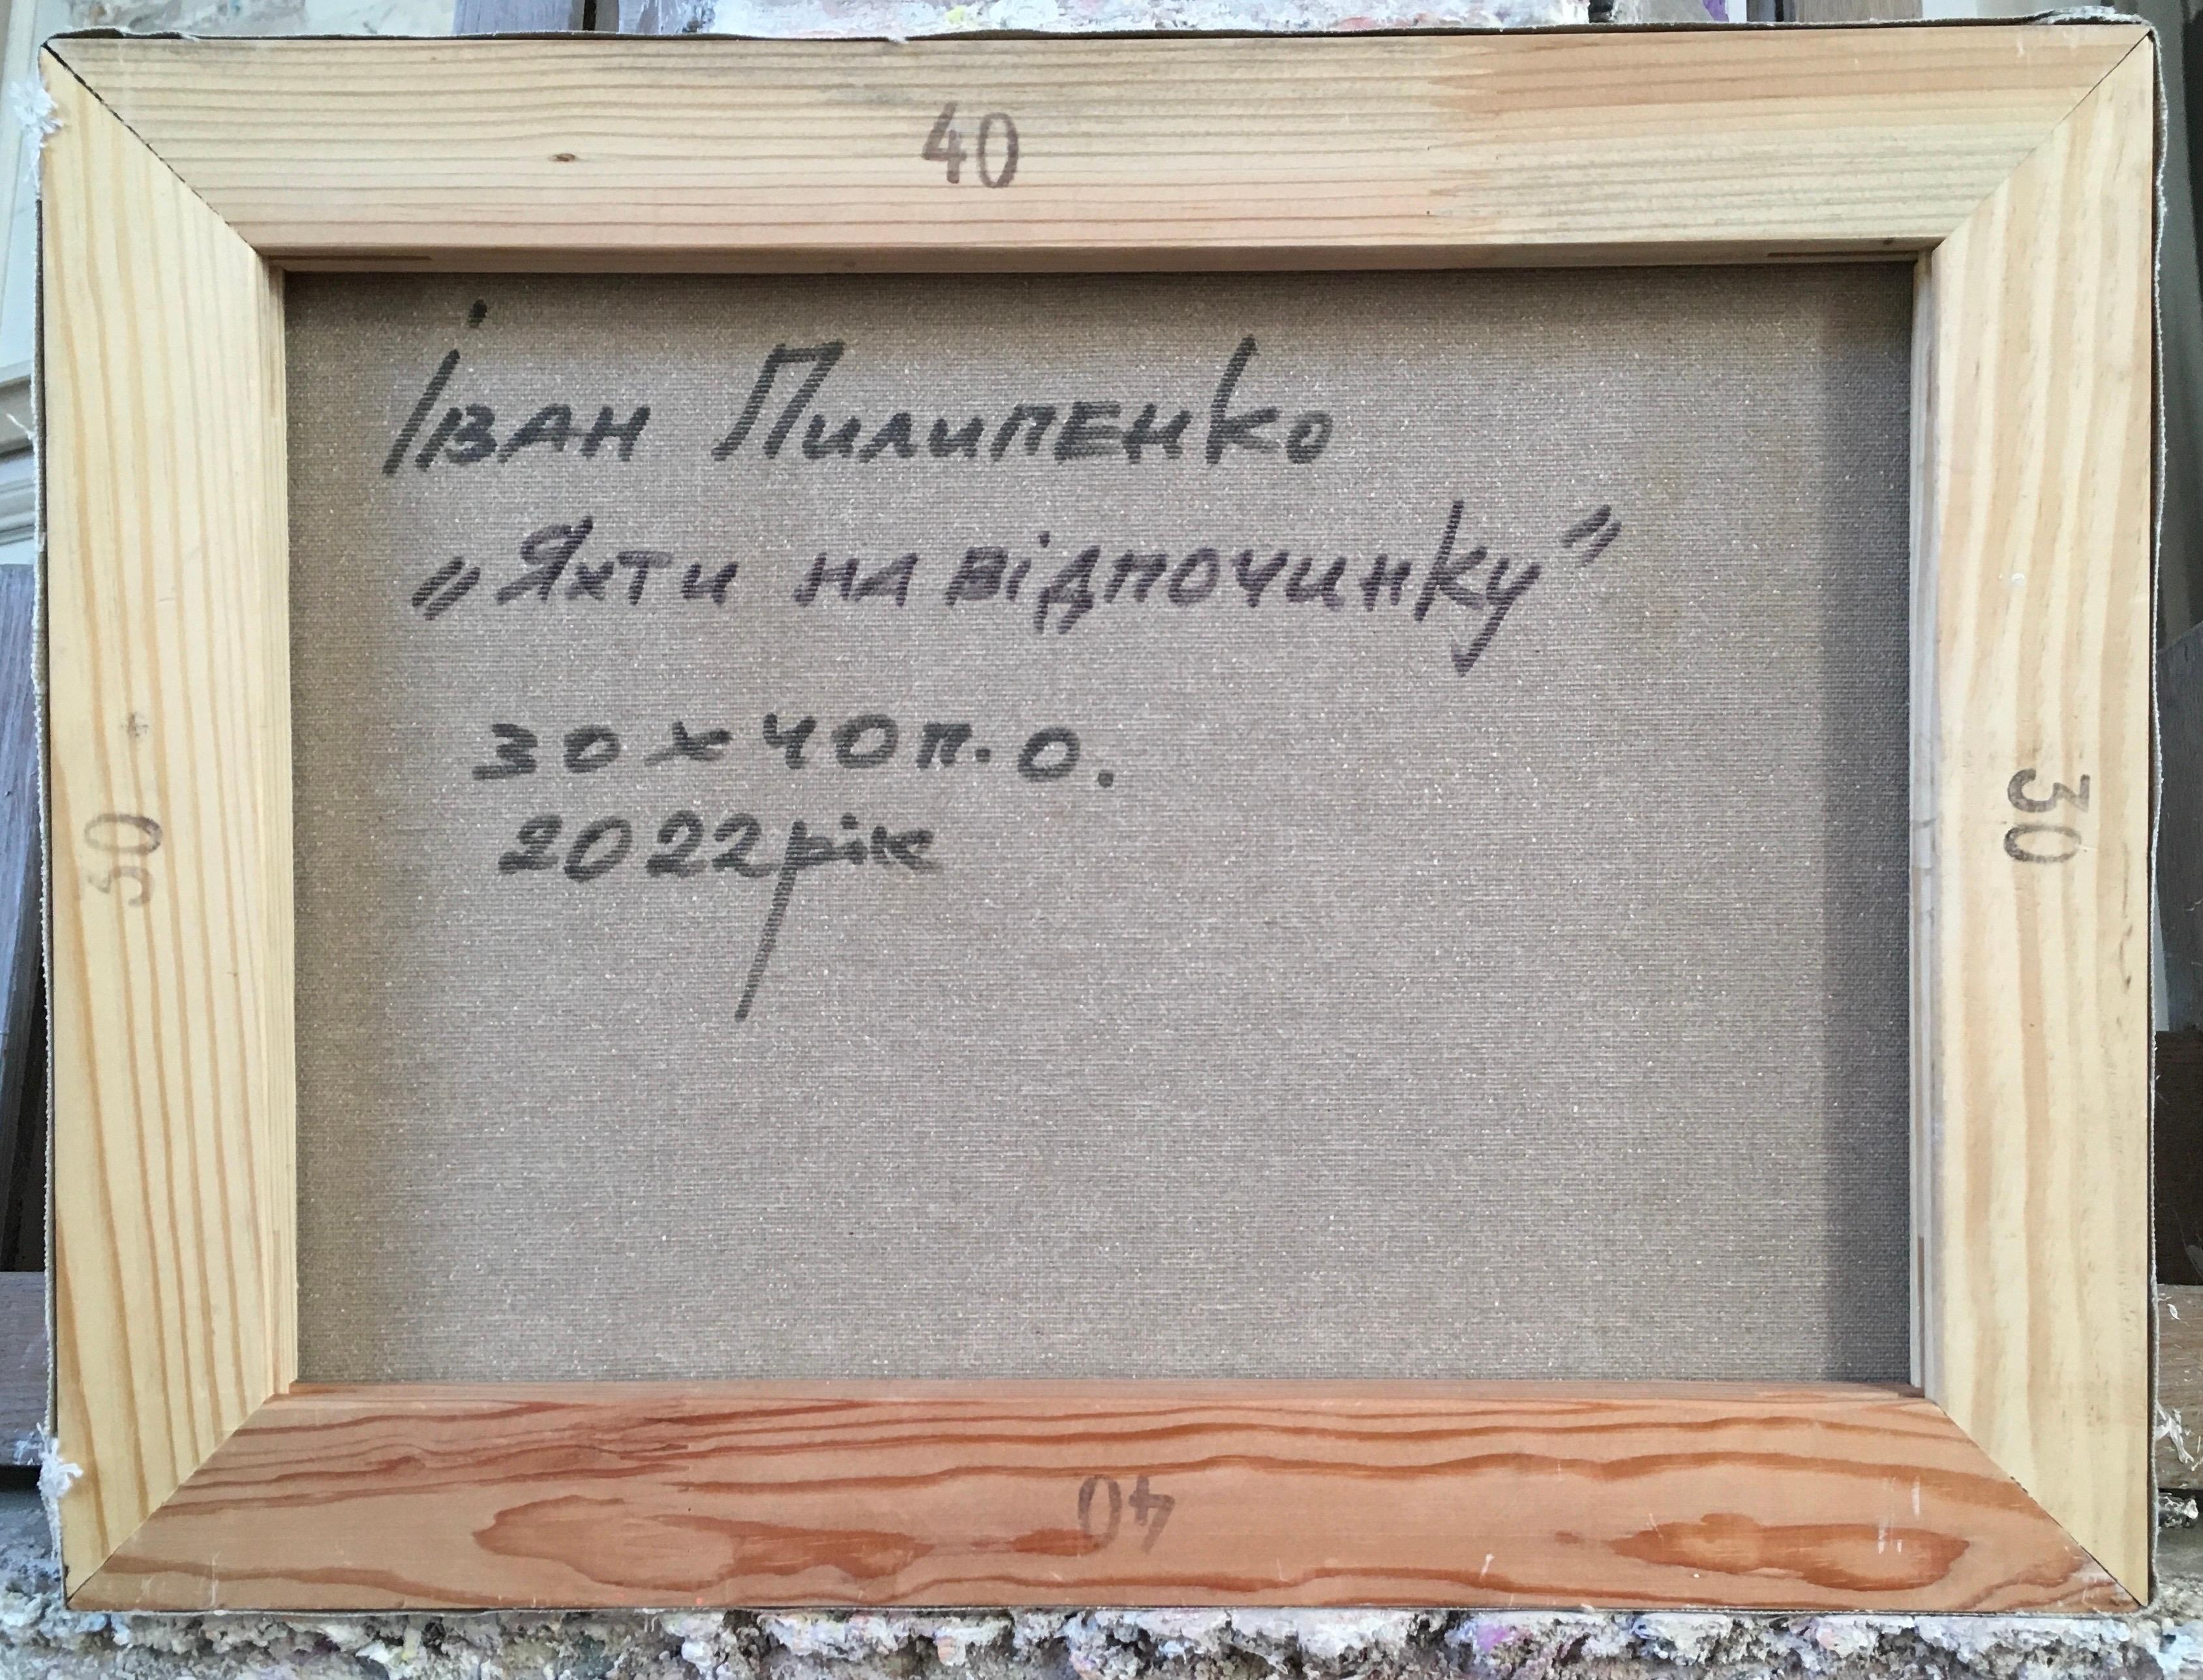 40
Іван Пилипенко
„Яхти на відпочинку”
30х40 п.о.
2022 рік
30
30
40